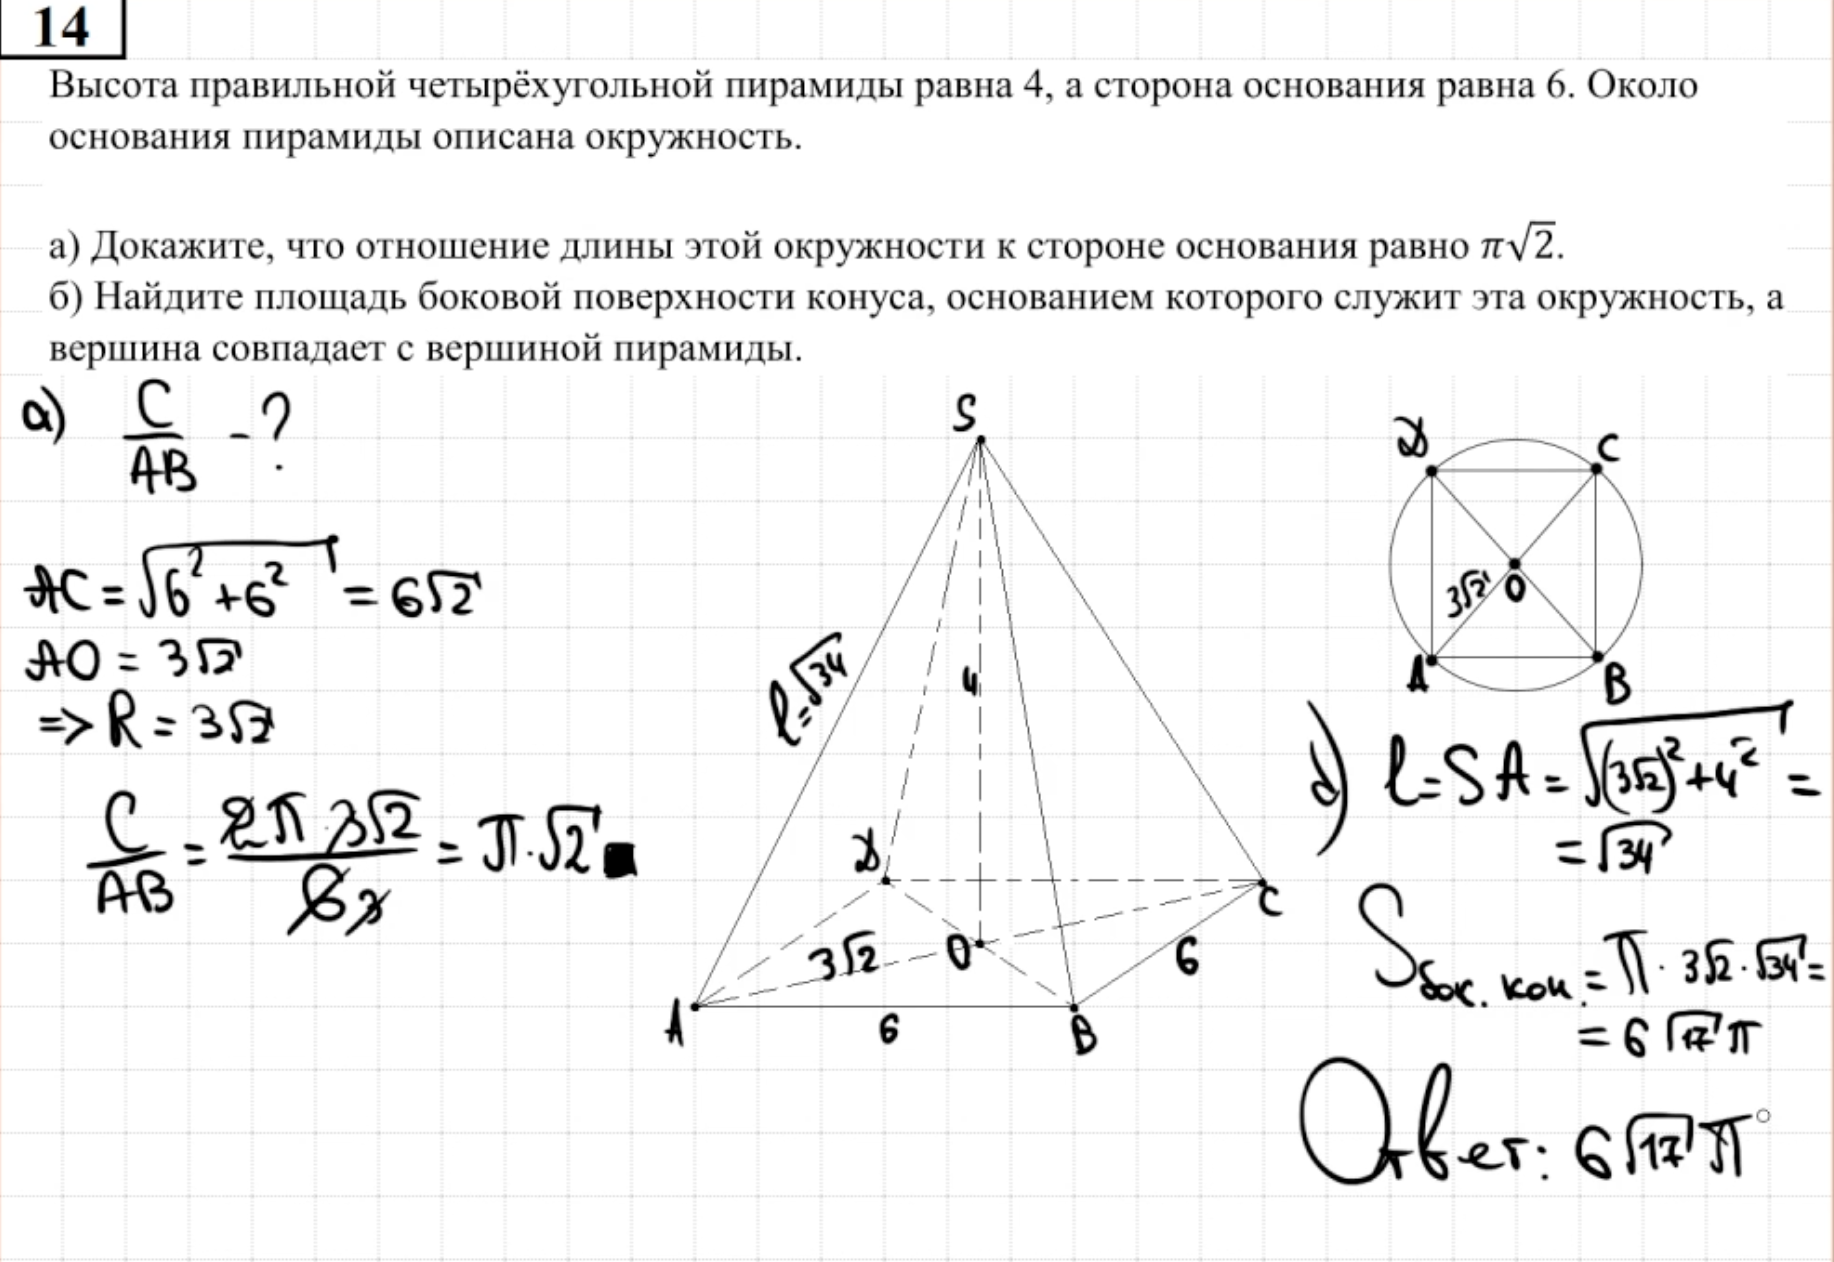 14
Высота правильной четырёхугольной пирамиды равна 4, а сторона основания равна 6. Около
основания пирамиды описана окружность.
а) Докажите, что отношение длины этой окружности к стороне основания равно π√2.
б) Найдите площадь боковой поверхности конуса, основанием которого служит эта окружность, а
вершина совпадает с вершиной пирамиды.
а) C/AB - ?
AC = √(6² + 6²) = 6√2
AO = 3√2
=> R = 3√2
C/AB = 2π · 3√2 / 6 3 = π · √2 ■
S
l = √34
4
D
C
3√2
O
6
A
6
B
D
C
3√2
O
A
B
б) l = SA = √((3√2)² + 4²) =
= √34
S бок. кон. = π · 3√2 · √34 =
= 6√17 π
Ответ: 6√17 π